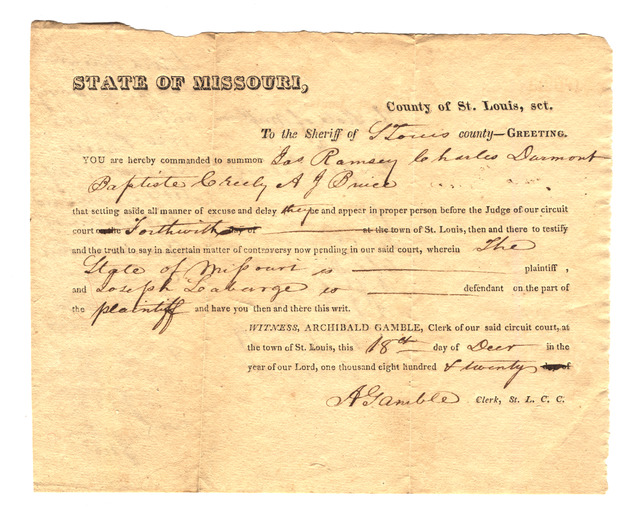 STATE OF MISSOURI,
County of St. Louis, sct.
To the Sheriff of St Louis county—GREETING.
YOU are hereby commanded to summon Jas Ramsey Charles Darmont
Baptiste Creely A J Bruce
that setting aside all manner of excuse and delay they be and appear in proper person before the Judge of our circuit
court on the Forthwith day of at the town of St. Louis, then and there to testify
and the truth to say in a certain matter of controversy now pending in our said court, wherein The
State of Missouri is plaintiff,
and Joseph Labarge is defendant on the part of
the plaintiff and have you then and there this writ.
WITNESS, ARCHIBALD GAMBLE, Clerk of our said circuit court, at
the town of St. Louis, this 18th day of Decr in the
year of our Lord, one thousand eight hundred & twenty
A Gamble Clerk, St. L. C. C.